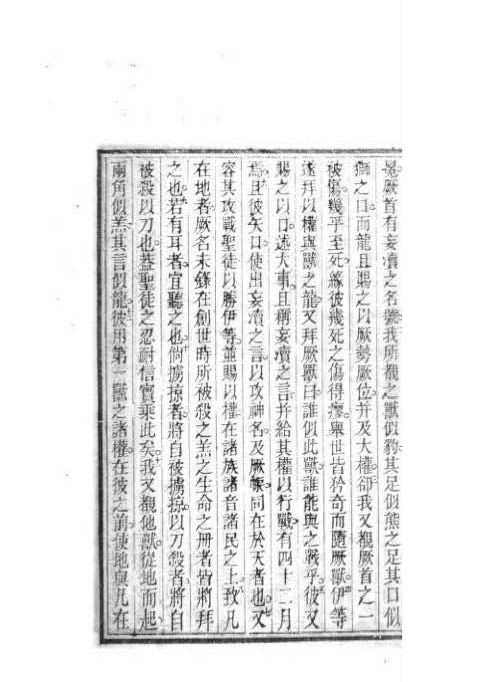 冕厥首有妄瀆之名號我所覩之獸似豹其足似熊之足其口似
獅之口而龍且賜之以厥勢厥位并及大權卻我又覩厥首之一
被傷幾乎至死緣彼幾死之傷得瘳舉世皆矜奇而隨厥獸伊等
遂拜以權與獸之龍又拜厥獸曰誰似此獸誰能與之戰乎彼又
賜之以口述大事且稱妄瀆之言并給其權以行戰有四十二月
焉且彼矢口使出妄瀆之言以攻神名及厥帳同在於天者也又
容其攻戰聖徒以勝伊等並賜以權在諸族諸音諸民之上致凡
在地者厥名未錄在創世時所被殺之羔之生命之冊者皆將拜
之也若有耳者宜聽之也倘擄掠者將自被擄掠以刀殺者將自
被殺以刀也蓋聖徒之忍耐信實乘此矣我又覩他獸從地而起
兩角似羔其言似龍彼用第一獸之諸權在彼之前使地與凡在